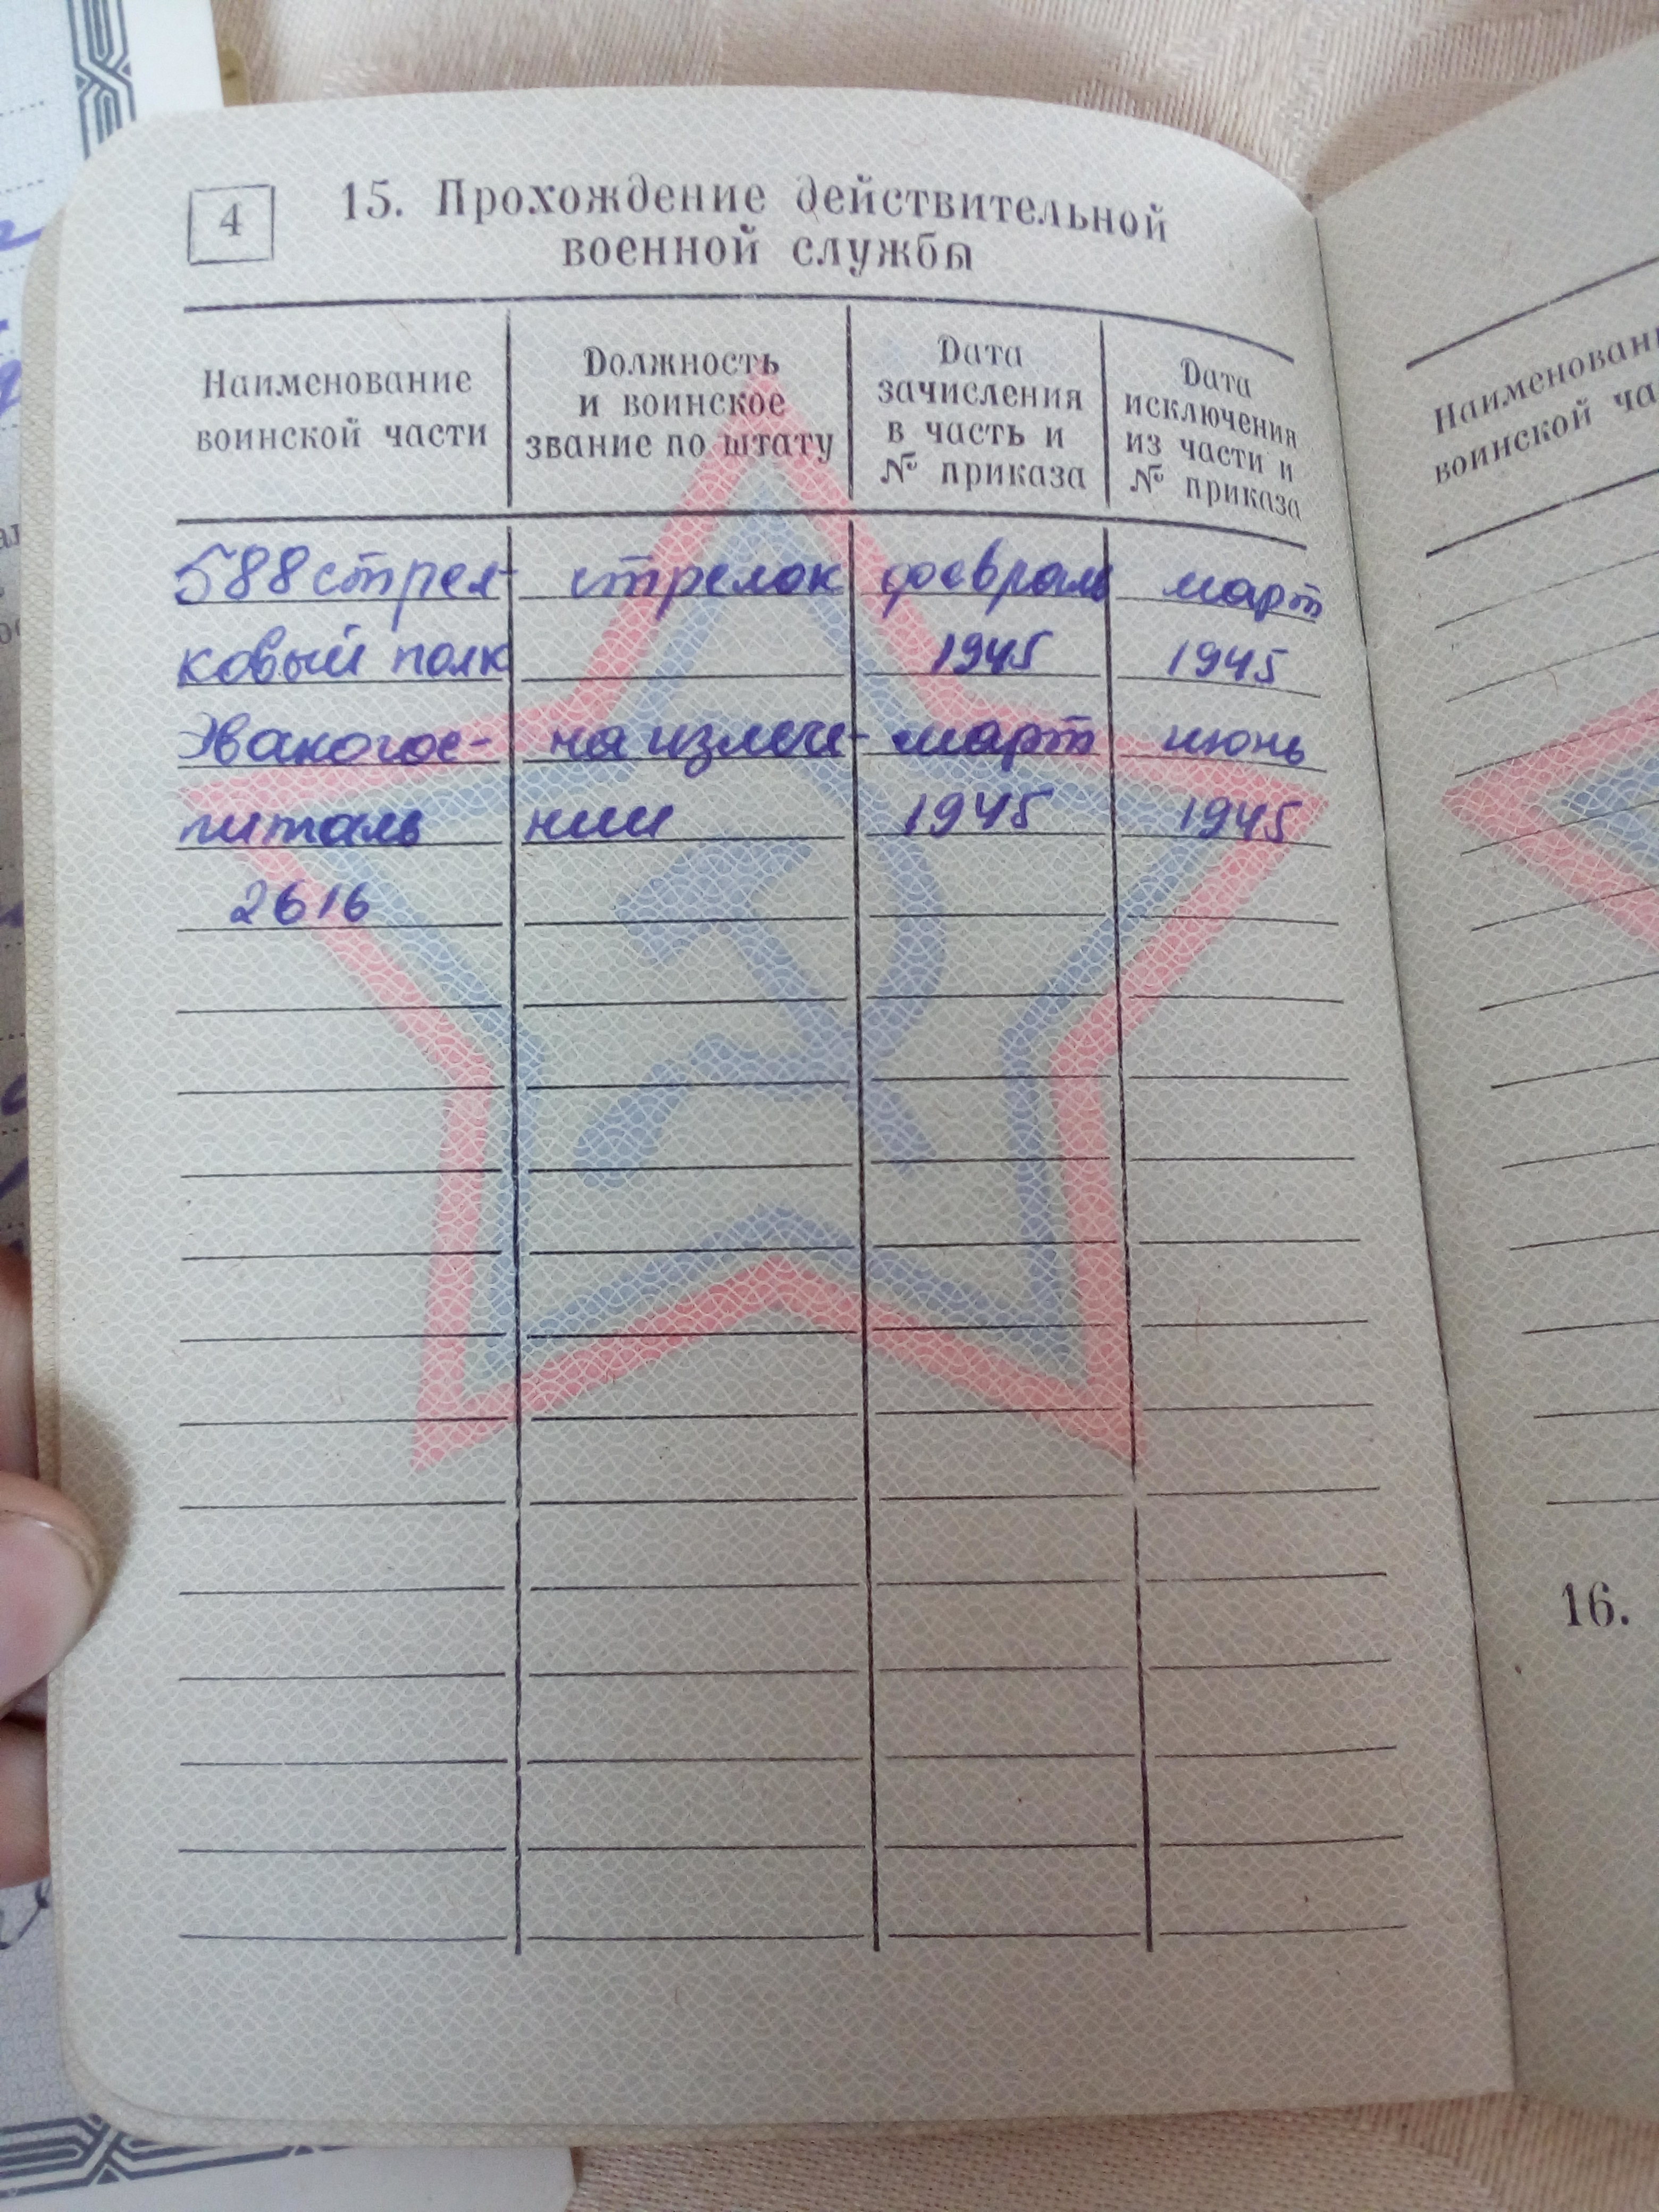 4
15. Прохождение действительной
военной службы
Наименование
воинской части
Должность
и воинское
звание по штату
Дата
зачисления
в часть и
№ приказа
Дата
исключения
из части и
№ приказа
588 стрел- стрелок февраль март
ковый полк 1945 1945
Эвакогос- на излече- март июнь
питаль нии 1945 1945
2616
Наименовани
воинской ча
16.